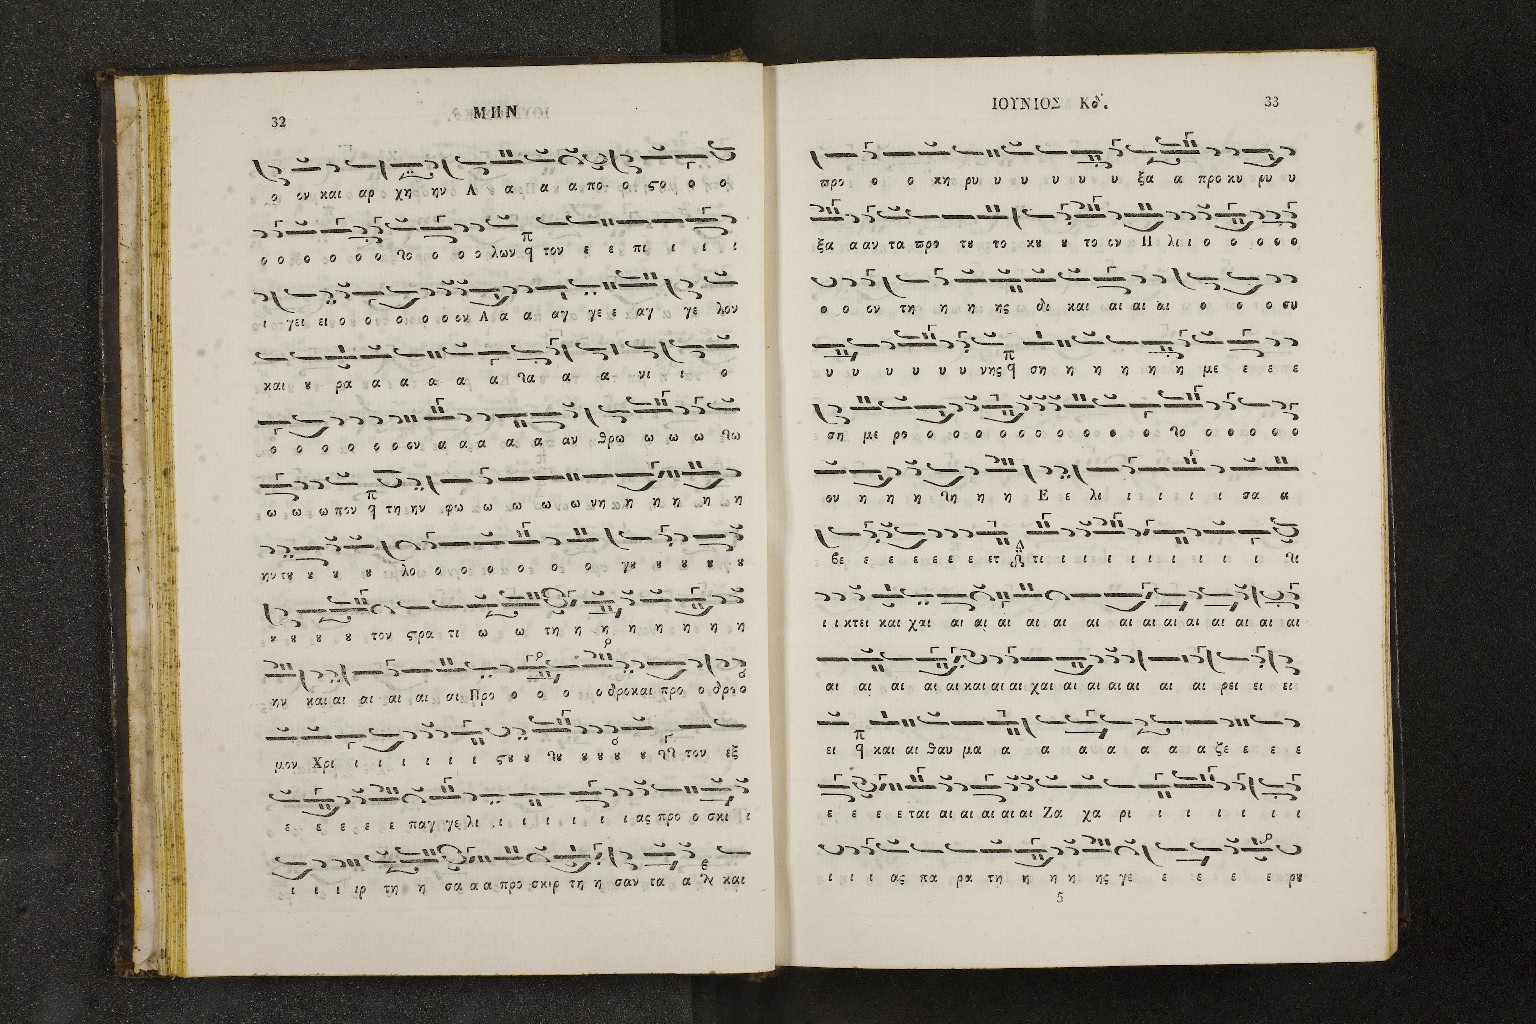 32
ΜΗΝ
ο ον και αρ χη ην Α α α α πο ο ςο ο ο
ο ο ο ο ο ο ϛο ο ο ο λων π̈ q τον ε ε πι ι ι ι
ι γει ει ο ο ο ο ο ον Α α α αγ γε ε αγ γε λον
και ȣ ρα α α α α α ϛα α α νι ι ο
ο ο ο ο ο ον α α α α α αν θρω ω ω ω ϛω
ω ω ω πον π q τη ην φω ω ω ω ω νη η η η η η
ην τȣ ȣ ȣ ȣ λο ο ο ο ο ο ο γȣ ȣ ȣ ȣ ȣ
ȣ ȣ ȣ ȣ τον ςρα τι ω ω τη η η η η η η η
ην και αι αι αι αι αι Προ ο ο ο ο δροκαι προ ο δρο ο
μον Χρι ι ι ι ι ι ι ςȣ ȣ ϛȣ ȣ ȣ ȣ ȣ τον εξ
ε ε ε ε ε παγ γε λι ι ι ι ι ι ι ας προ ο σκι ι
ι ι ι ιρ τη η σα α α προ σκιρ τη η σαν τα α και
ΙΟΥΝΙΟΣ Κδ.
33
προ ο ο κη ρυ υ υ υ υ υ ξα α προ κυ ρυ υ
ξα α αν τα προ τȣ το κȣ ȣ το ον Π λι ι ο ο ο ο ο
ο ο ον τη η η ης φι και αι αι αι ο ο ο συ
υ υ υ υ υ υ νης π q ση η η η η η με ε ε ε
ση με ρο ο ο ο ο ο ο ο ο ο ϛο ο ο ο ο ο
ον η η η ϛη η η Ε ε λι ι ι ι ι ι σα α
βε ε ε ε ε ε ε ετ Δ τι ι ι ι ι ι ι ι ι ι ϛι
ι ι κτει και χαι αι αι αι αι αι αι αι αι αι αι αι αι αι αι
αι αι αι αι αι και αι αι χαι αι αι αι αι αι αι ρει ει ει
ει π q και αι θαυ μα α α α α α α α α ζε ε ε ε
ε ε ε ε ται αι αι αι αι αι Ζα χα ρι ι ι ι ι ι
ι ι ι ας πα ρα τη η η η ης γε ε ε ε ε ρȣ
5